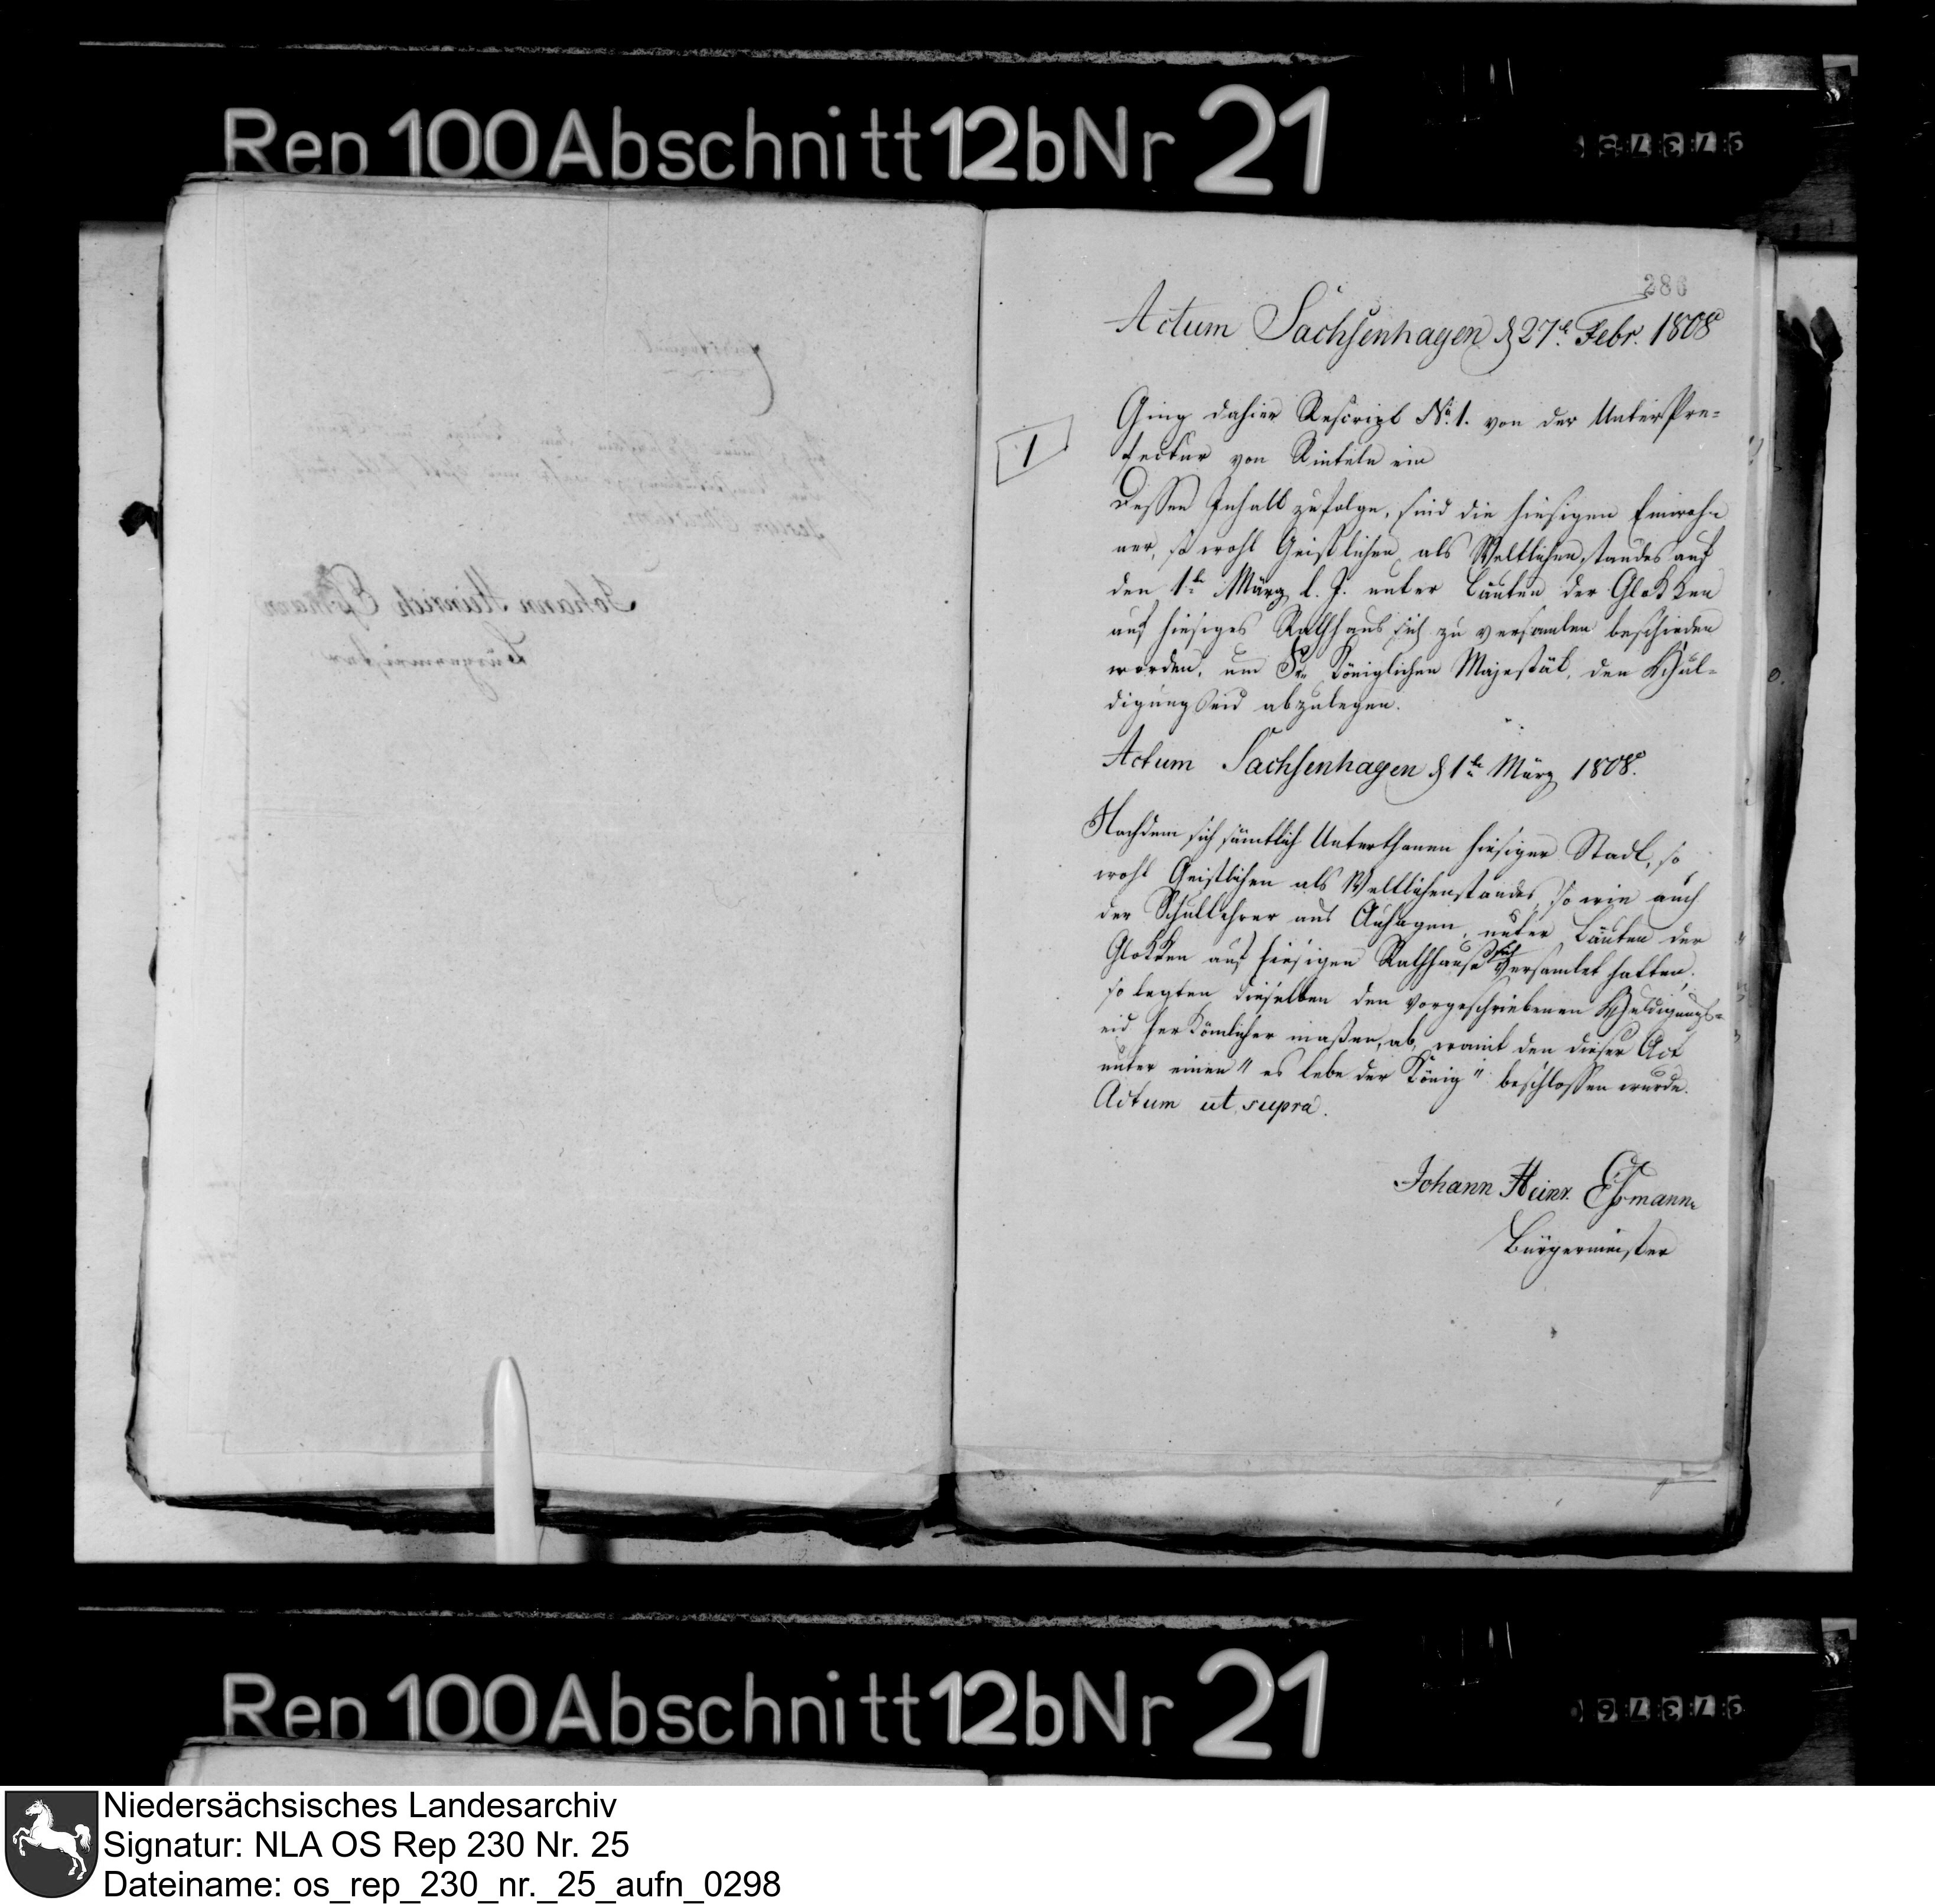 Rep 100 Abschnitt 12b Nr 21
57375
286
Actum Sachsenhagen d 27t. Febr. 1808
1
Ging dahier Rescript No. 1. von der UnterPre-
fectur von Rinteln ein
Dessen Inhalt zufolge, sind die hiesigen Einwoh-
ner, so wohl Geistlichen als Weltlichenstandes auf
den 1te März l. J. unter Läuten der Glokken
auf hiesiges Rathhaus sich zu versamlen beschieden
worden, um Sr. Königlichen Majestät, den Hul-
digungseid abzulegen.
Actum Sachsenhagen d 1te März 1808.
Nachdem sich sämtlich Unterthanen hiesiger Stadt, so
wohl Geistlichen als Weltlichenstandes, so wie auch
der Schullehrer aus Auhagen, unter Läuten der
Glokken auf hiesigen Rathhause sich versamlet hatten,
so legten dieselben den vorgeschriebenen Huldigungs-
eid herkömlicher maßen, ab, womit den dieser Act
unter einen " es lebe der König " beschlossen wurde.
Actum ut supra.
Johann Heinr. Eßmann
Bürgermeister
Johann Heinrich Eßmann
Bürgermeister
Rep 100 Abschnitt 12b Nr 21
57376
Niedersächsisches Landesarchiv
Signatur: NLA OS Rep 230 Nr. 25
Dateiname: os_rep_230_nr._25_aufn_0298